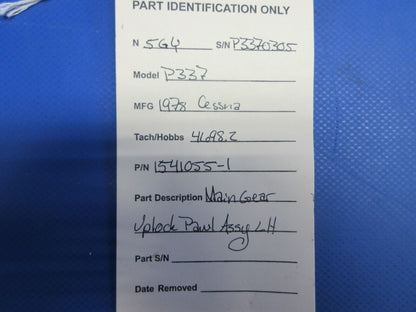 PART IDENTIFICATION ONLY
N 5GY S/N P3370305
Model P337
MFG 1978 Cessna
Tach/Hobbs 4698.2
P/N 1541055-1
Part Description Main Gear
Uplock Pawl Assy LH
Part S/N
Date Removed